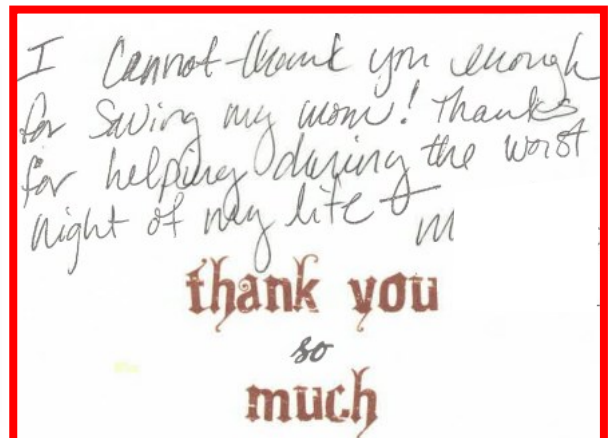 I Cannot thank you enough
for Saving my mom! Thanks
for helping during the worst
night of my life
M
thank you
so
much